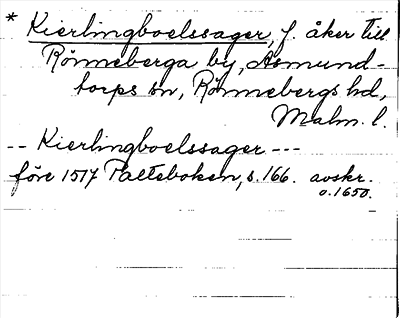 * Kierlingboelssager, f. åker till
Rönneberga by, Asmund-
torps sn, Rönnebergs hd,
Malm. l.
-- Kierlingboelssager ---
före 1517 Palteboken, s. 166. avskr.
o. 1650.